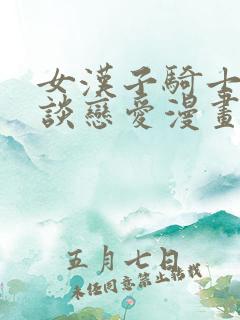 女漢子騎士
談戀愛漫畫
五月七日
未經同意禁止轉載